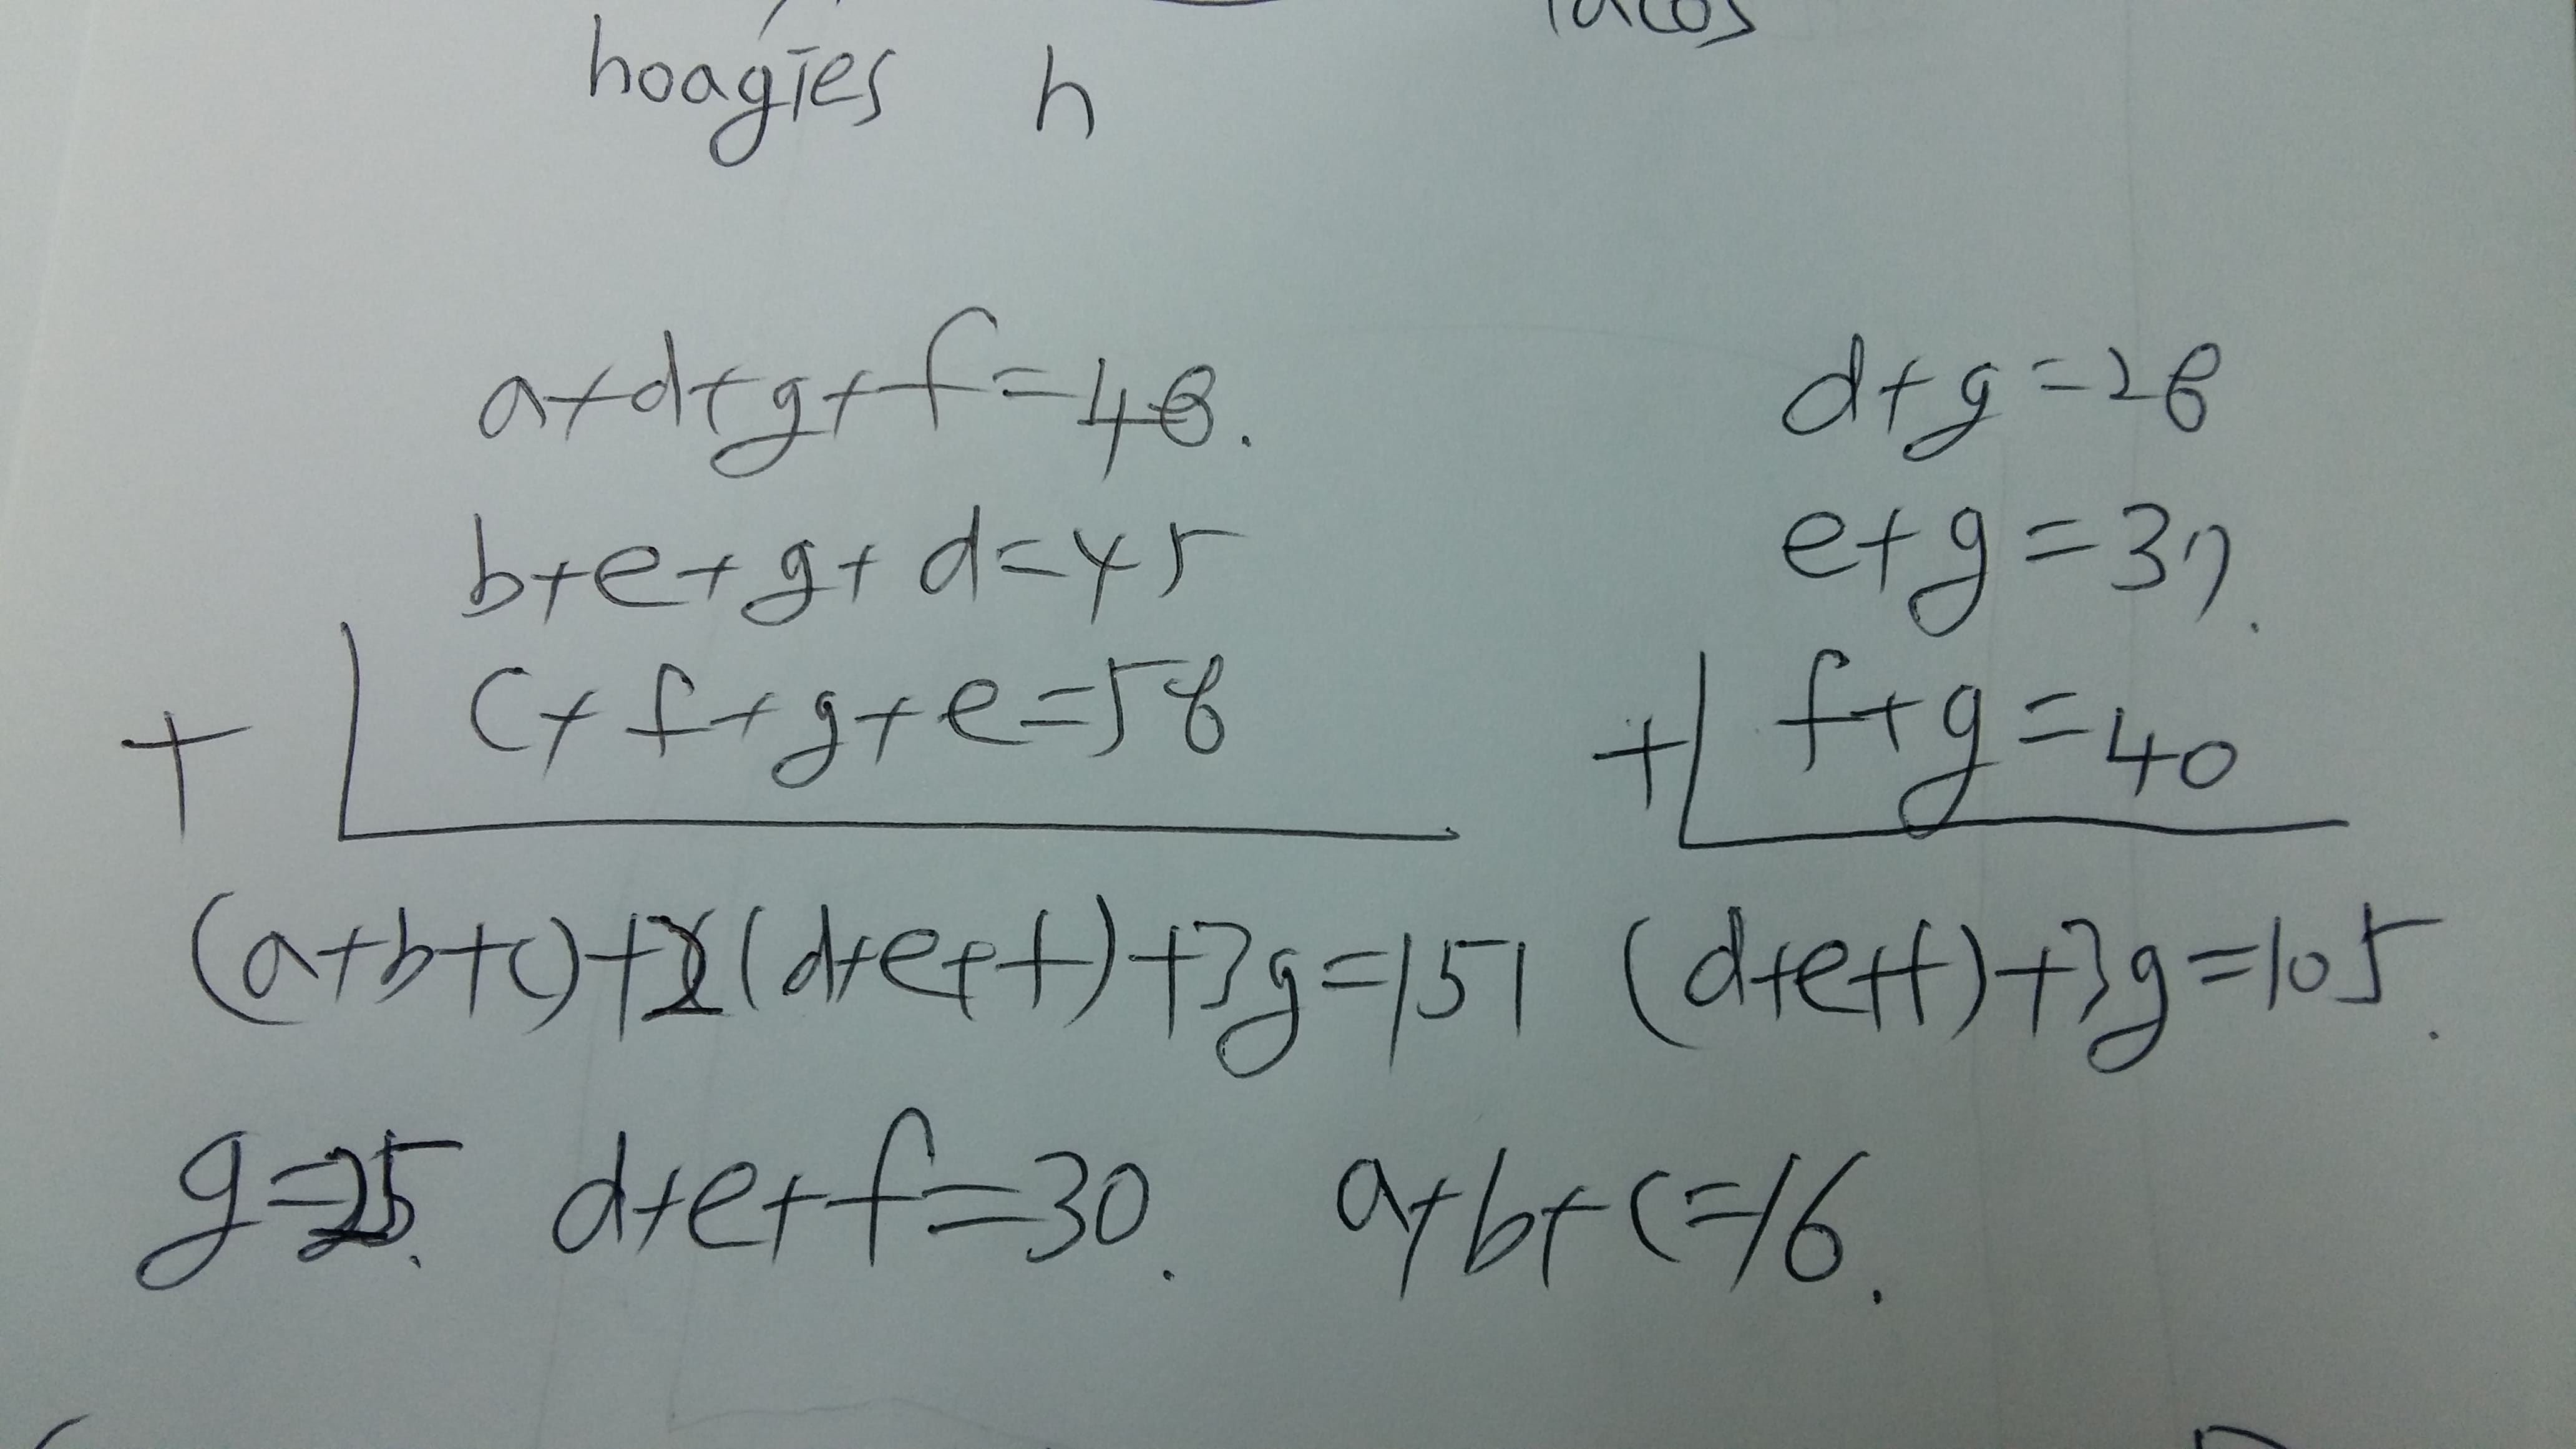 tacos
hoagies h
a+d+g+f=48.
d+g=28
b+e+g+d=45
e+g=37.
+ c+f+g+e=58
+ f+g=40
(a+b+c)+2(d+e+f)+3g=151
(d+e+f)+3g=105.
g=25. d+e+f=30. a+b+c=16.